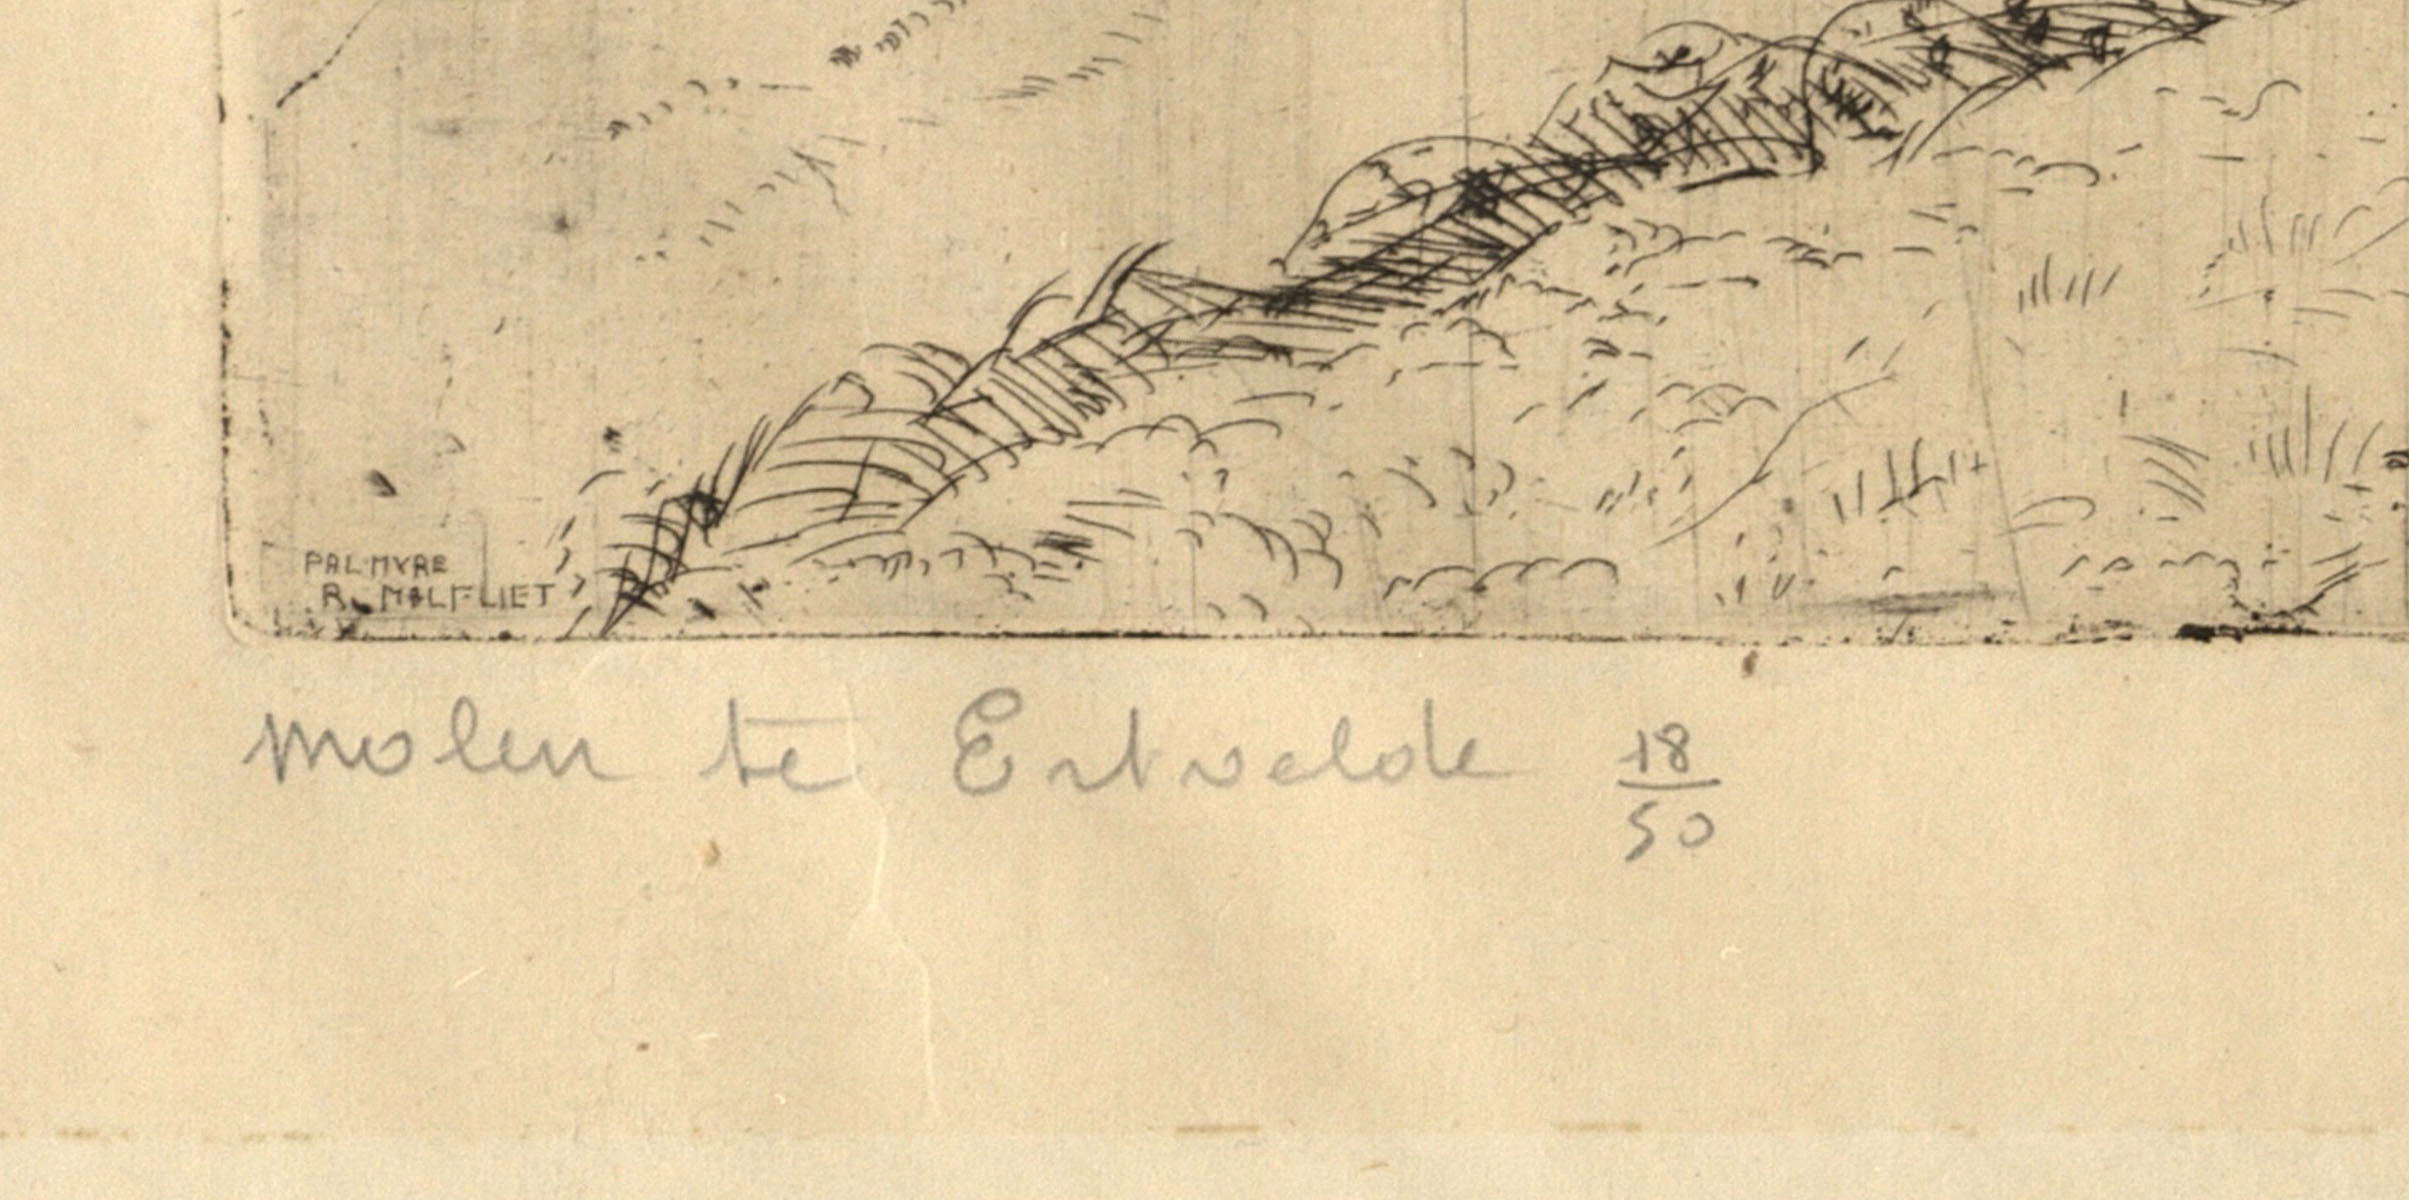 PALMYRE
R. MOLFLIET
Molen te Ertvelde 18/50